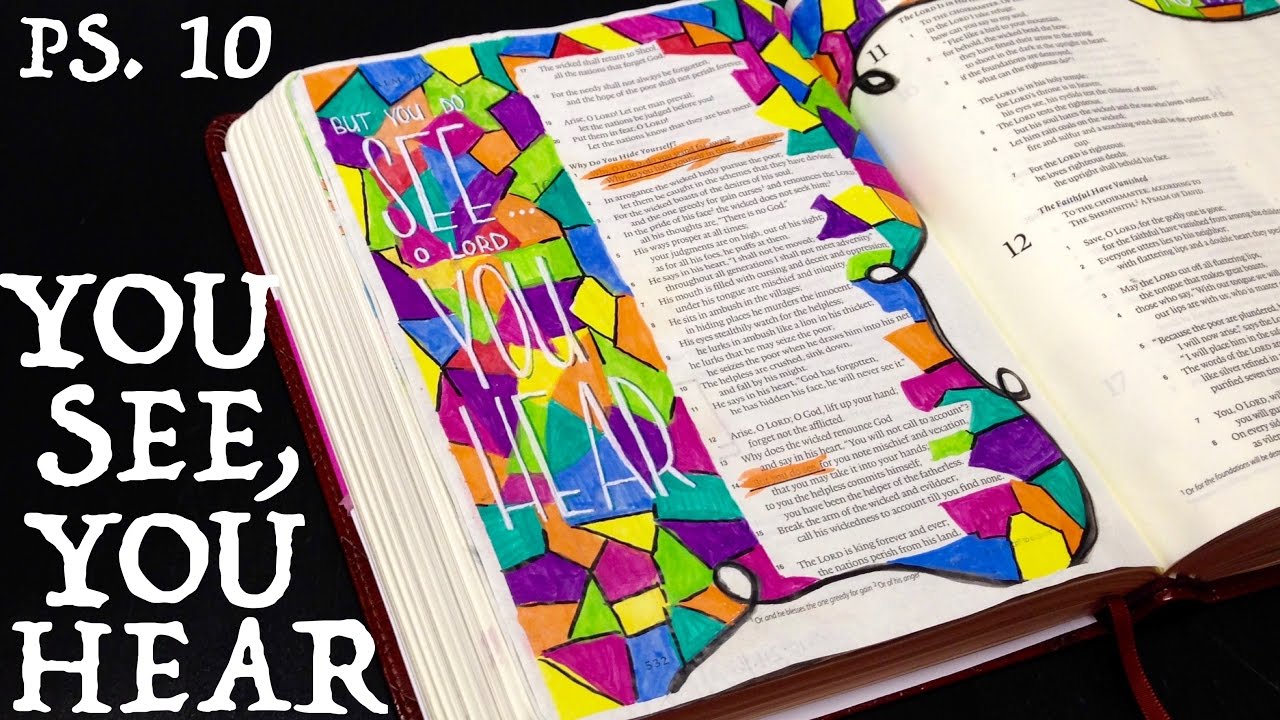 PS. 10
YOU
SEE,
YOU
HEAR
BUT YOU DO
SEE...
O LORD
YOU
HEAR
17 The wicked shall return to Sheol,
all the nations that forget God.
18 For the needy shall not always be forgotten,
and the hope of the poor shall not perish forever.
19 Arise, O LORD! Let not man prevail;
let the nations be judged before you!
20 Put them in fear, O LORD!
Let the nations know that they are but men!
Why Do You Hide Yourself?
why do you hide yourself in times of trouble?
2 In arrogance the wicked hotly pursue the poor;
let them be caught in the schemes that they have devised.
3 For the wicked boasts of the desires of his soul,
and the one greedy for gain curses¹ and renounces the LORD.
4 In the pride of his face² the wicked does not seek him;
all his thoughts are, "There is no God."
5 His ways prosper at all times;
your judgments are on high, out of his sight;
as for all his foes, he puffs at them.
6 He says in his heart, "I shall not be moved;
throughout all generations I shall not meet adversity."
7 His mouth is filled with cursing and deceit and oppression;
under his tongue are mischief and iniquity.
8 He sits in ambush in the villages;
in hiding places he murders the innocent.
His eyes stealthily watch for the helpless;
9 he lurks in ambush like a lion in his thicket;
he lurks that he may seize the poor;
he seizes the poor when he draws him into his net.
10 The helpless are crushed, sink down,
and fall by his might.
11 He says in his heart, "God has forgotten,
he has hidden his face, he will never see it."
12 Arise, O LORD; O God, lift up your hand;
forget not the afflicted.
13 Why does the wicked renounce God
and say in his heart, "You will not call to account"?
14 But you do see, for you note mischief and vexation,
that you may take it into your hands;
to you the helpless commits himself;
you have been the helper of the fatherless.
15 Break the arm of the wicked and evildoer;
call his wickedness to account till you find none.
16 The LORD is king forever and ever;
the nations perish from his land.
¹ Or and he blesses the one greedy for gain ² Or of his anger
532
11
TO THE CHOIRMASTER. OF
1 In the LORD I take refuge;
how can you say to my soul,
"Flee like a bird to your mountain,
2 for behold, the wicked bend the bow;
they have fitted their arrow to the string
to shoot in the dark at the upright in heart;
3 if the foundations are destroyed,
what can the righteous do?"
4 The LORD is in his holy temple;
the LORD's throne is in heaven;
his eyes see, his eyelids test the children of man.
5 The LORD tests the righteous,
but his soul hates the wicked and the one who loves violence.
6 Let him rain coals on the wicked;
fire and sulfur and a scorching wind shall be the portion of their
cup.
7 For the LORD is righteous;
he loves righteous deeds;
the upright shall behold his face.
The Faithful Have Vanished
12
TO THE CHOIRMASTER: ACCORDING TO
THE SHEMINITH. A PSALM OF DAVID.
1 Save, O LORD, for the godly one is gone;
for the faithful have vanished from among the children
2 Everyone utters lies to his neighbor;
with flattering lips and a double heart they
3 May the LORD cut off all flattering lips,
the tongue that makes great boasts,
4 those who say, "With our tongue we
our lips are with us; who is master
5 "Because the poor are plundered,
I will now arise," says the L
"I will place him in the
6 The words of the LORD
like silver refined i
purified seven time
7 You, O LORD, w
you will gu
8 On every sid
as vile
¹ Or for the foundations will be destroyed